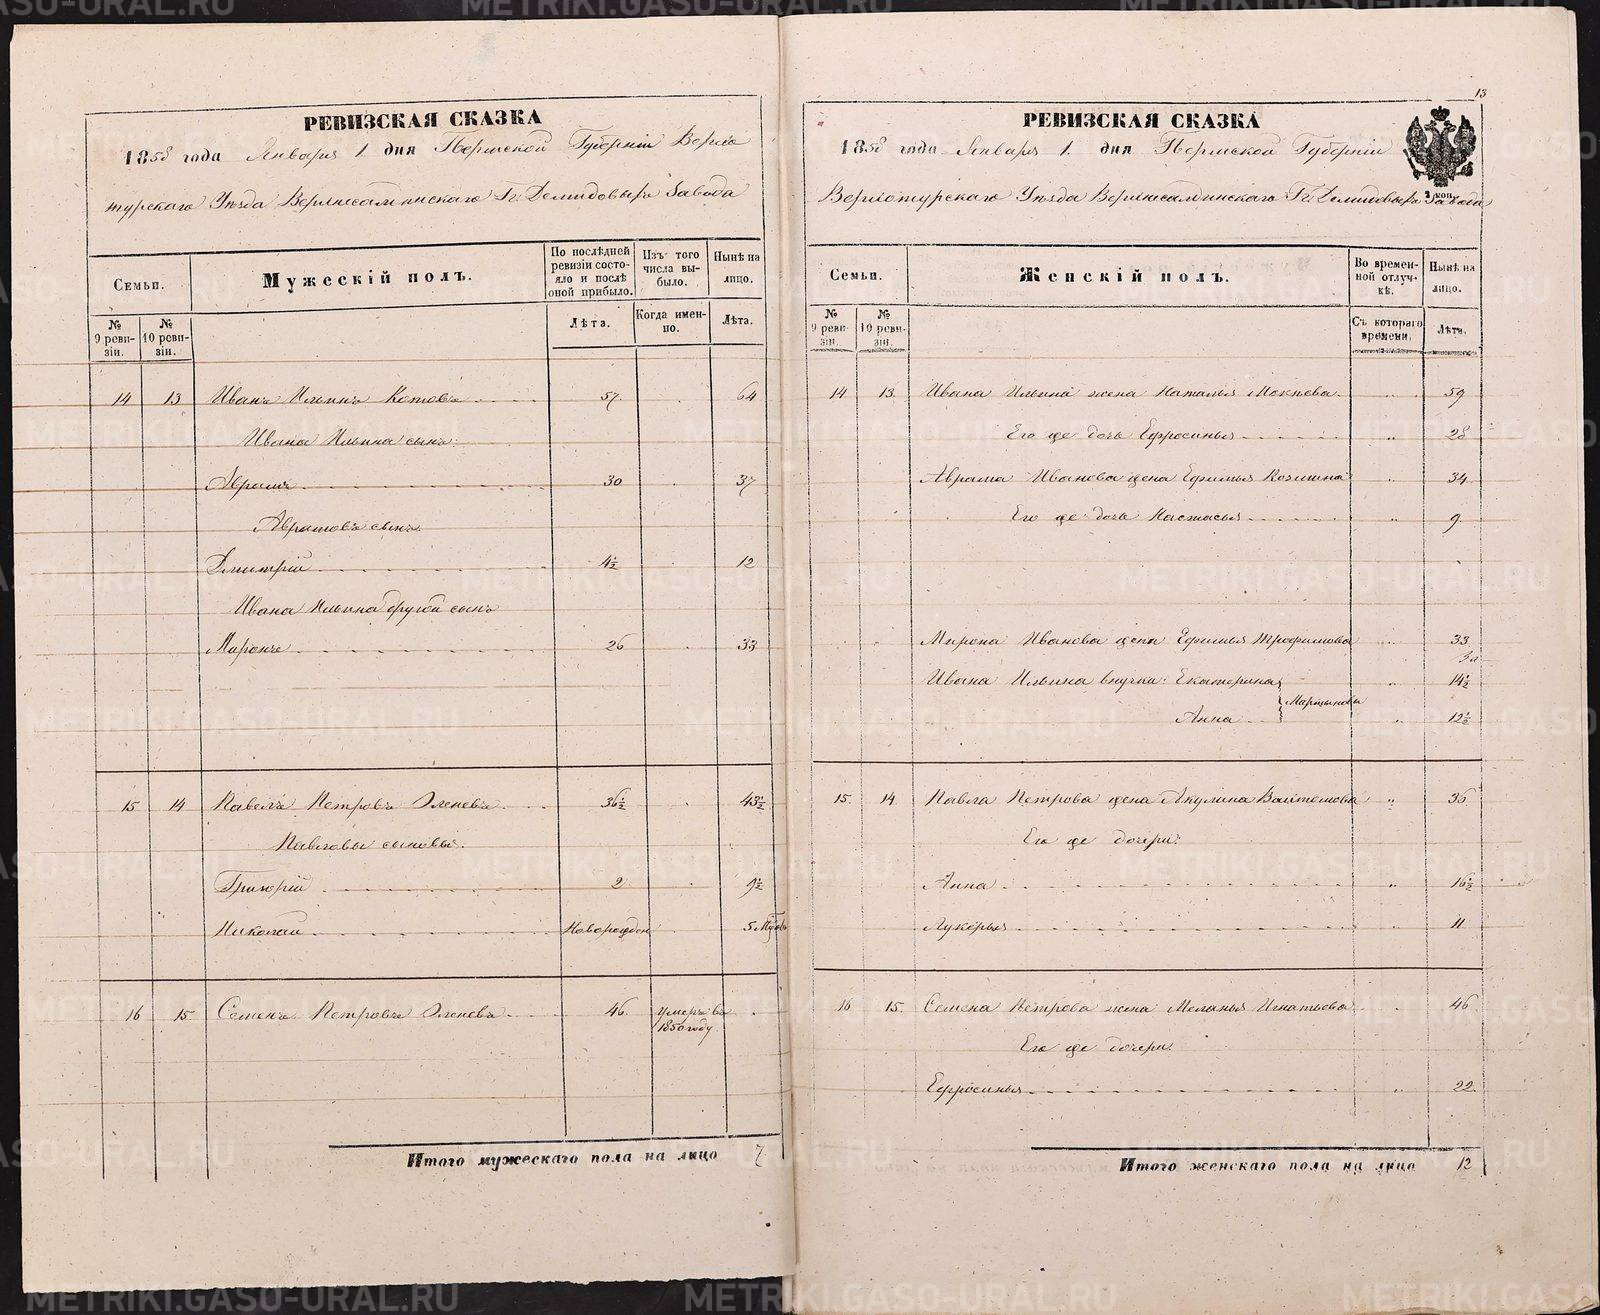 РЕВИЗСКАЯ СКАЗКА
1858 года Января 1. дня Пермской Губерніи Верхо
турскаго Уѣзда Верхнесалдинскаго Гг. Демидовыхъ Завода
Семьи.
Мужескій полъ.
По послѣдней ревизіи состояло и послѣ оной прибыло.
Изъ того числа выбыло.
Нынѣ на лицо.
№ 9 ревизіи.
№ 10 ревизіи.
Лѣта.
Когда именно.
Лѣта.
14 13 Иванъ Ильинъ Котовъ 57. 64
Ивана Ильина сынъ:
Аврамъ 30 37
Аврамовъ сынъ
Дмитрій 4½ 12
Ивана Ильина другой сынъ
Миронъ 26 33
15 14 Павелъ Петровъ Оленевъ 36½ 43½
Павловы сыновья.
Григорій 2 9½
Николай Новорожден 5
16 15 Семенъ Петровъ Оленевъ 46. умеръ въ
1850 году
Итого мужескаго пола на лицо 7
13
РЕВИЗСКАЯ СКАЗКА
1858 года Января 1. дня Пермской Губерніи
Верхотурскаго Уѣзда Верхнесалдинскаго Гг. Демидовыхъ Завода
Семьи.
Женскій полъ.
Во временной отлучкѣ.
Нынѣ на лицо.
№ 9 ревизіи.
№ 10 ревизіи.
Съ котораго времени.
Лѣта.
14 13. Ивана Ильина жена Наталья Мокѣева. 59
Его же дочь Ефросинья 28
Аврама Иванова жена Ефимья Козмина 34
Его же дочь Настасья 9
Мирона Иванова жена Ефимья Трофимова 33
Ивана Ильина внучки: Екатерина 14½
Мартынова
Анна 12½
15. 14. Павла Петрова жена Акулина 36.
Его же дочери:
Анна 16½
Лукерья 11
16 15. Семена Петрова жена Меланья Игнатьева 46
Его же дочери:
Ефросинья 22
Итого женскаго пола на лицо 12
METRIKI.GASO-URAL.RU